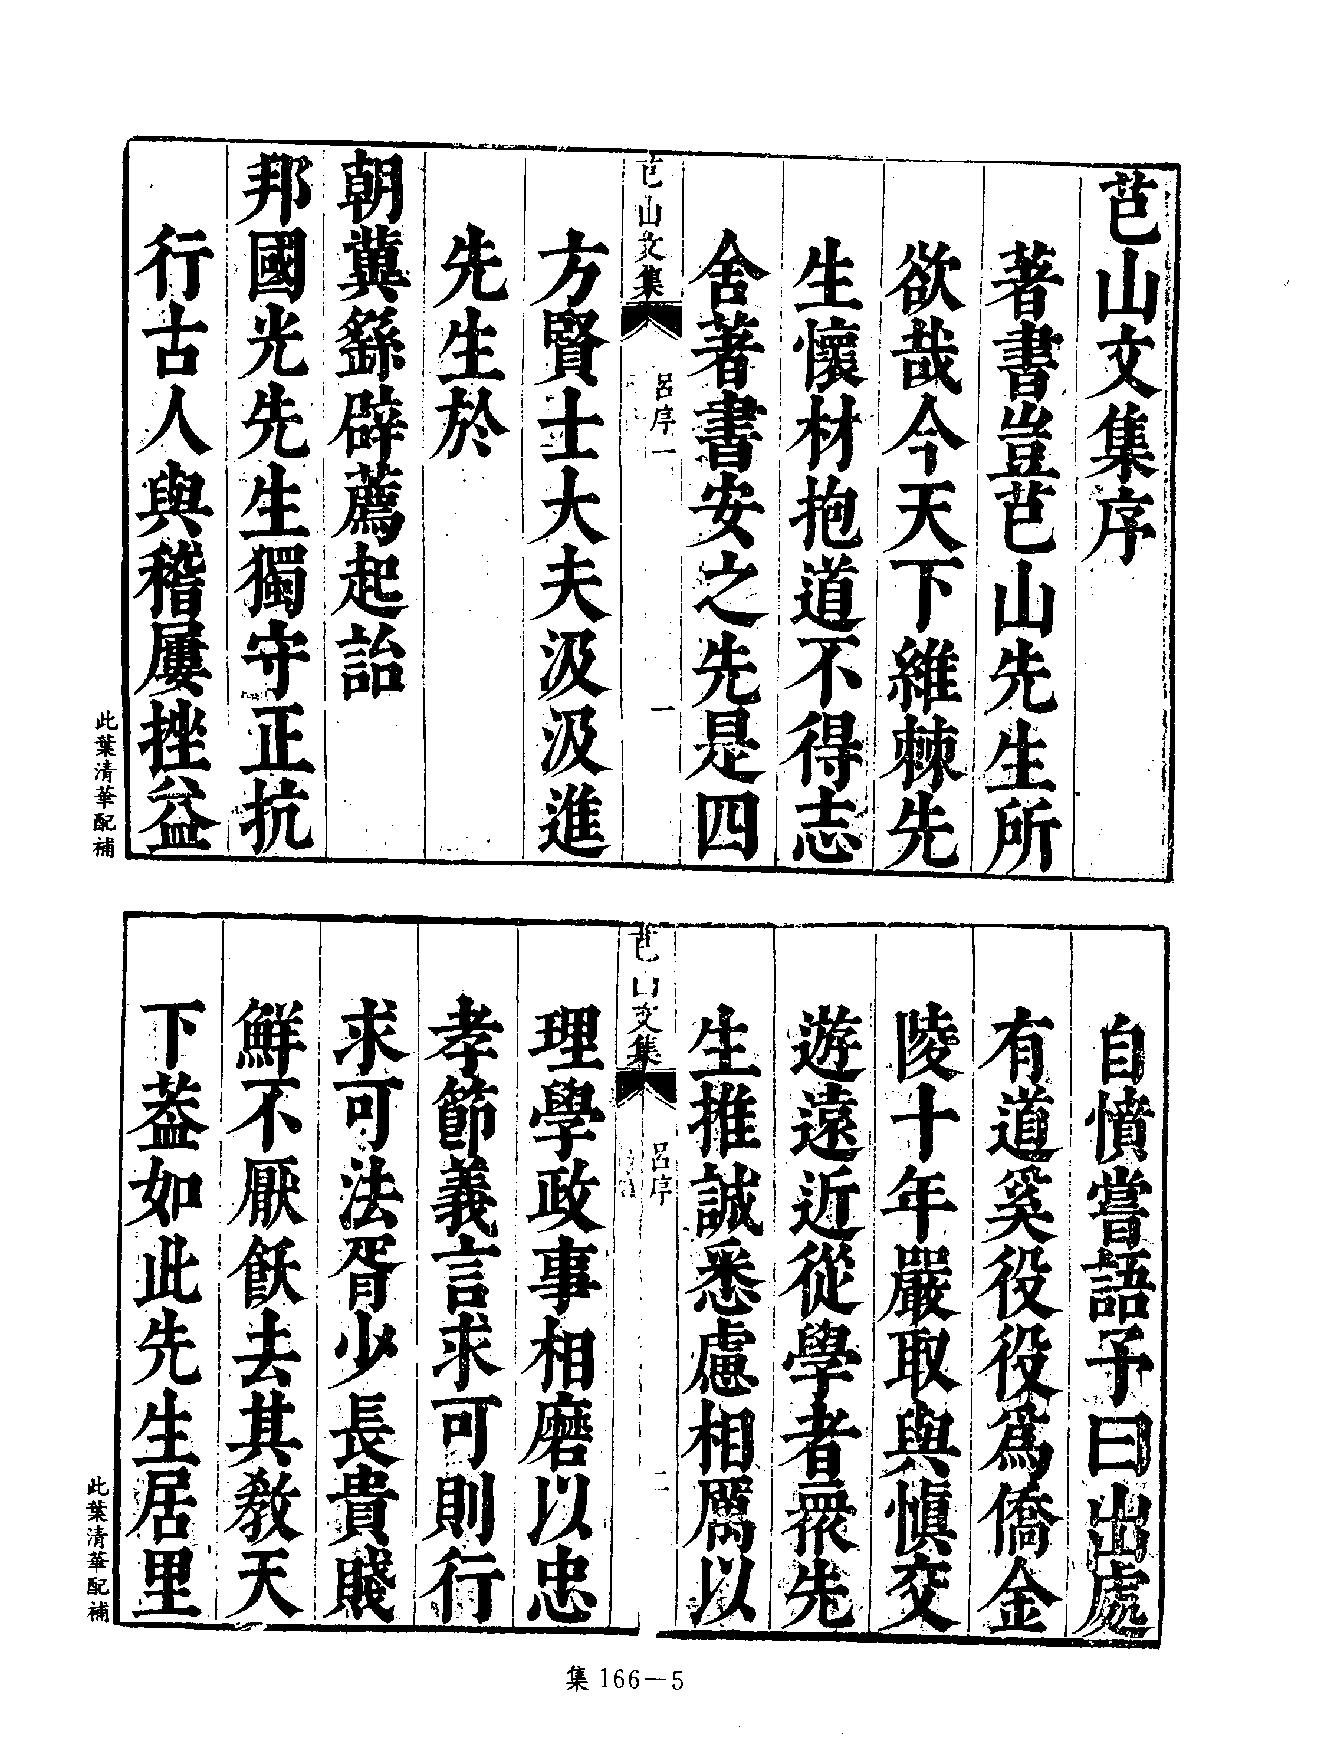 芑山文集序
著書豈芑山先生所
欲哉今天下維棘先
生懷材抱道不得志
舍著書安之先是四
芑山文集
呂序一
一
方賢士大夫汲汲進
先生於
朝冀繇辟薦起詒
邦國光先生獨守正抗
行古人與稽屢挫益
此葉清華配補
自憤嘗語予曰出處
有道奚役役爲僑金
陵十年嚴取與慎交
遊遠近從學者衆先
生推誠悉慮相厲以
芑山文集
呂序
二
理學政事相磨以忠
孝節義言求可則行
求可法胥少長貴賤
鮮不厭飫去其敎天
下葢如此先生居里
此葉清華配補
集166—5